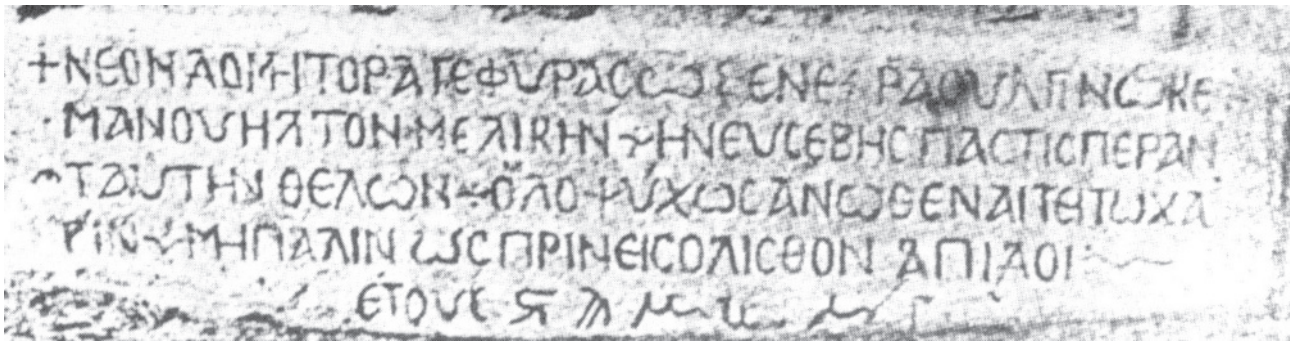 +ΝΕΟΝ ΔΟΜΗΤΟΡΑ ΓΕΦΥΡΑC ΩΣ ΕΝΕ ΡΑΟΥΛ ΠΙΝ ΩΚΕ
ΜΑΝΟΥΗΛ ΤΟΝ ΜΕΛΙΚΗΝ ΗΝ ΕΥCΕΒΗC ΠΑC ΤΙC ΠΕΡΑΝ
ΤΑΥΤΗΝ ΘΕΛΩΝ ΟΛΟΨΥΧΩC ΑΝΩΘΕΝ ΑΙΤΕΙΤΩ ΧΑ
ΡΙΝ ΜΗ ΠΑΛΙΝ ΩC ΠΡΙΝ ΕΙC ΟΛΙCΘΟΝ ΑΠΙΔΟΙ
ΕΤΟΥC